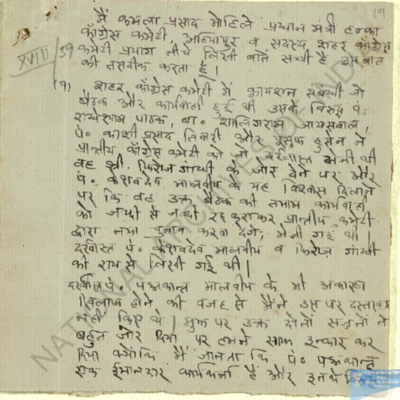 19
XVIII/59
मैं कमला प्रसाद मोहिले प्रधान मंत्री हल्का
काँग्रेस कमेटी, अहियापुर व सदस्य शहर काँग्रेस
कमेटी प्रयाग नीचे लिखी बातें सच्ची है इस बात
की तसदीक करता हूँ।
(१) शहर काँग्रेस कमेटी में सम्बन्धी जो
बैठक और कार्यवाही हुई थी उसके विरुद्ध पं.
राधेश्याम पाठक, बा. शालिगराम जायसवाल,
पं. काशी प्रसाद तिवारी और यूसुफ हुसेन ने
प्रान्तीय काँग्रेस कमेटी को जो भेजी थी
वह श्री. फिरोज गान्धी के जोर देने पर और
पं. केशवदेव मालवीय के यह विश्वास दिलाने
पर कि वह उक्त बैठक की तमाम कार्यवाही
को रद्द कराकर प्रान्तीय कमेटी
द्वारा नया चुनाव करवा देंगे, भेजी गई थी।
दरख्वास्त पं. केशवदेव मालवीय व फिरोज गान्धी
की राय से लिखी गई थी।
पं. पद्मकान्त मालवीय के भी
खिलाफ होने की वजह से मैंने उस पर दस्तखत
नहीं किए थे। मुझ पर उक्त दोनों सज्जनों ने
बहुत जोर दिया पर मैंने साफ इन्कार कर
दिया क्योंकि मैं जानता कि पं. पद्मकान्त
एक ईमानदार कार्यकर्ता हैं और इनके विरुद्ध
NATIONAL ARCHIVES OF INDIA